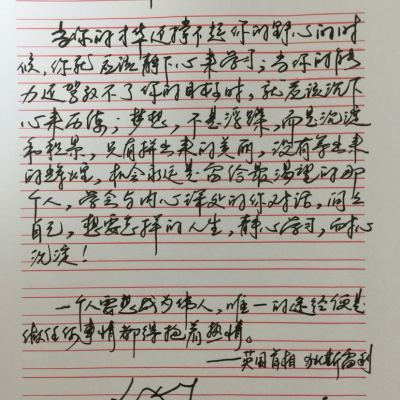 当你的才华还撑不起你的野心的时
候，你就应该静下心来学习；当你的能
力还驾驭不了你的目标时，就应该沉下
心来历练；梦想，不是浮躁，而是沉淀
和积累，只有拼出来的美丽，没有等出来
的辉煌，机会永远是留给最渴望的那
个人，学会与内心深处的你对话，问问
自己，想要怎样的人生，静心学习，耐心
沉淀！
一个人要想成为伟人，唯一的途径便是
做任何事情都得抱着热情。
——英国首相 狄斯雷利